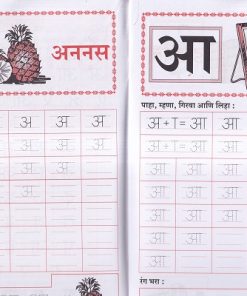 अननस
अ अ अ
अ अ अ
अ अ
अ
आ
पाहा, म्हणा, गिरवा आणि लिहा :
अ + ा = आ आ
अ + ा = आ आ
आ आ आ
आ आ आ
आ आ
आ आ
रंग भरा :